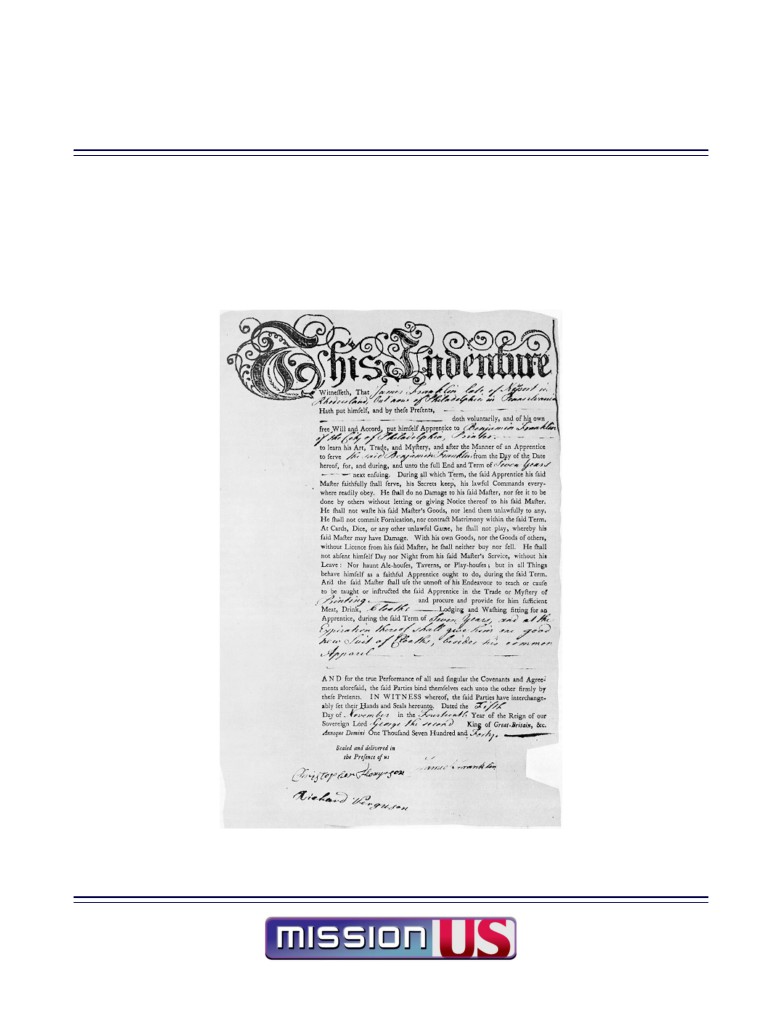 This Indenture
Witnesseth, That James Franklin late of Newport in
Rhodeisland, but now of Philadelphia in Pennsylvania
Hath put himself, and by these Presents,
doth voluntarily, and of his own
free Will and Accord, put himself Apprentice to Benjamin Franklin
of the City of Philadelphia, Printer.
to learn his Art, Trade, and Mystery, and after the Manner of an Apprentice
to serve the said Benjamin Franklin from the Day of the Date
hereof, for, and during, and unto the full End and Term of Seven Years
next ensuing. During all which Term, the said Apprentice his said
Master faithfully shall serve, his Secrets keep, his lawful Commands every-
where readily obey. He shall do no Damage to his said Master, nor see it to be
done by others without letting or giving Notice thereof to his said Master.
He shall not waste his said Master's Goods, nor lend them unlawfully to any.
He shall not commit Fornication, nor contract Matrimony within the said Term.
At Cards, Dice, or any other unlawful Game, he shall not play, whereby his
said Master may have Damage. With his own Goods, nor the Goods of others,
without Licence from his said Master, he shall neither buy nor sell. He shall
not absent himself Day nor Night from his said Master's Service, without his
Leave: Nor haunt Ale-houses, Taverns, or Play-houses; but in all Things
behave himself as a faithful Apprentice ought to do, during the said Term.
And the said Master shall use the utmost of his Endeavour to teach or cause
to be taught or instructed the said Apprentice in the Trade or Mystery of
Printing. and procure and provide for him sufficient
Meat, Drink, Cloaths Lodging and Washing fitting for an
Apprentice, during the said Term of Seven Years, and at the
Expiration thereof shall give him one good
new Suit of Cloaths, besides his common
Apparel
AND for the true Performance of all and singular the Covenants and Agree-
ments aforesaid, the said Parties bind themselves each unto the other firmly by
these Presents. IN WITNESS whereof, the said Parties have interchange-
ably set their Hands and Seals hereunto. Dated the Fifth
Day of November in the Fourteenth Year of the Reign of our
Sovereign Lord George the second King of Great-Britain, &c.
Annoque Domini One Thousand Seven Hundred and Forty.
Sealed and delivered in
the Presence of us
James Franklin
Christopher Thompson
Richard Ferguson
MISSION US